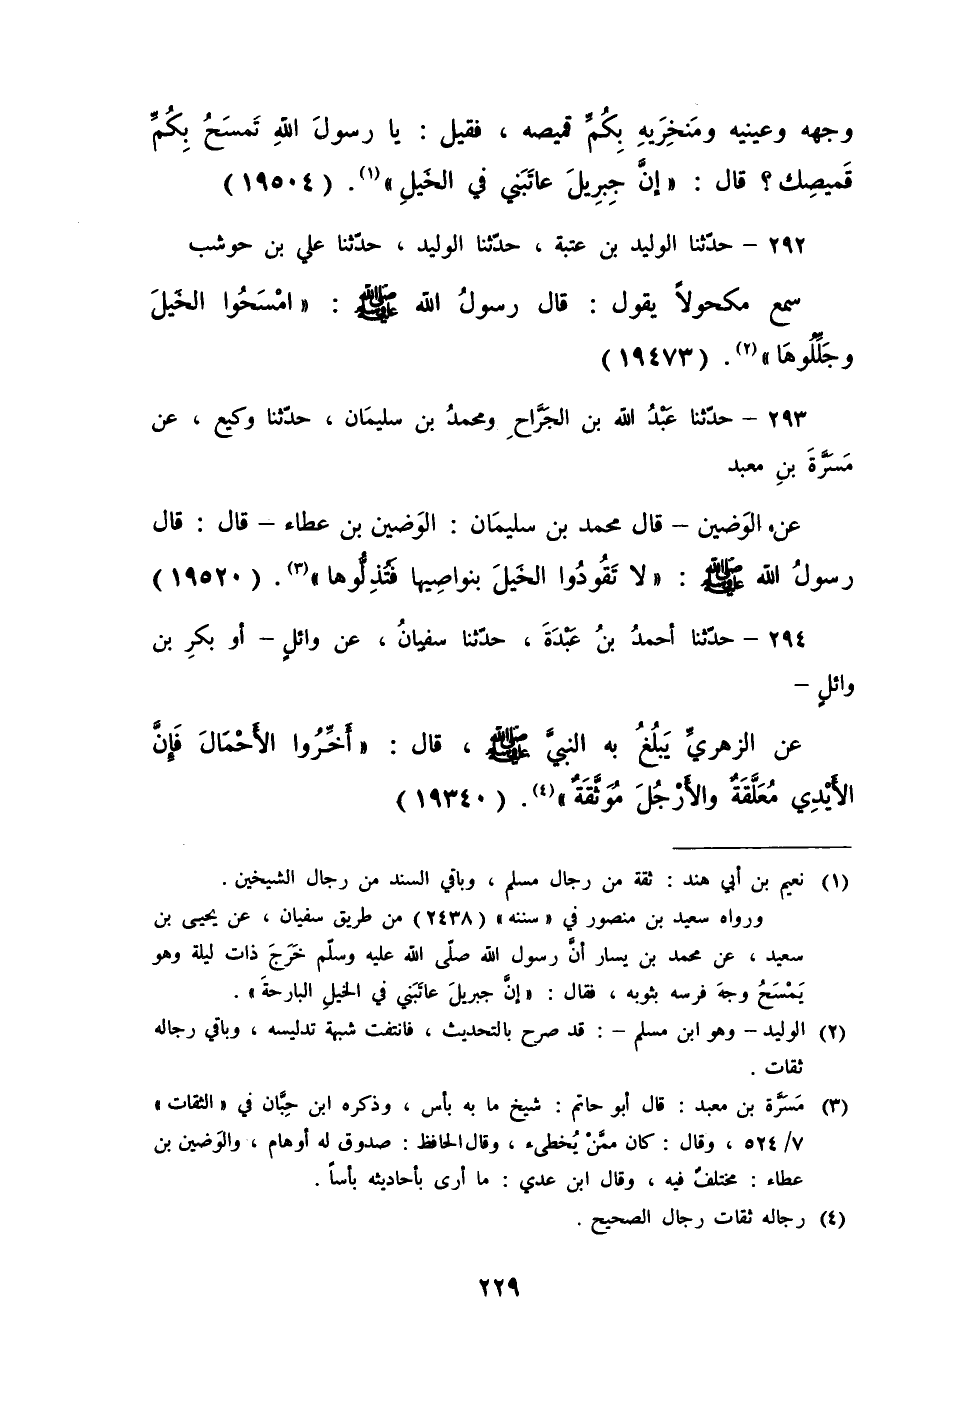 وجهه وعينيه ومَنخِرَيهِ بِكُمِّ قميصه ، فقيل : يا رسولَ اللهِ تَمسَحُ بِكُمِّ
قَميصِك؟ قال : « إنَّ جِبرِيلَ عاتَبَني في الخَيلِ »(١). ( ١٩٥٠٤ )
٢٩٢ – حدّثنا الوليد بن عتبة ، حدّثنا الوليد ، حدّثنا علي بن حوشب
سمع مكحولاً يقول : قال رسولُ الله ﷺ : « امْسَحُوا الخَيلَ
وجَلِّلُوهَا »(٢). ( ١٩٤٧٣ )
٢٩٣ – حدّثنا عَبْدُ الله بن الجَرَّاحِ ومحمدُ بن سليمَان ، حدّثنا وكيع ، عن
مَسَرَّةَ بنِ معبد
عن الوَضين – قال محمد بن سليمَان : الوَضين بن عطاء – قال : قال
رسولُ الله ﷺ : « لا تَقُودُوا الخَيلَ بنواصِيها فَتُذِلُّوها »(٣). ( ١٩٥٢٠ )
٢٩٤ – حدّثنا أحمدُ بنُ عَبْدَةَ ، حدّثنا سفيانُ ، عن وائلٍ – أو بكرِ بن
وائلٍ –
عن الزهريِّ يَبلُغُ به النبيَّ ﷺ ، قال : « أَخِّرُوا الأَحْمَالَ فَإِنَّ
الأَيْدِي مُعَلَّقَةٌ والأَرْجُلَ مُوَثَّقَةٌ »(٤). ( ١٩٣٤٠ )
(١) نعيم بن أبي هند : ثقة من رجال مسلم ، وباقي السند من رجال الشيخين .
ورواه سعيد بن منصور في « سننه » ( ٢٤٣٨ ) من طريق سفيان ، عن يحيى بن
سعيد ، عن محمد بن يسار أنَّ رسول الله صلّى الله عليه وسلّم خَرَجَ ذات ليلة وهو
يَمْسَحُ وجهَ فرسه بثوبه ، فقال : « إنَّ جبريلَ عاتَبَني في الخيلِ البارحةَ » .
(٢) الوليد – وهو ابن مسلم – : قد صرح بالتحديث ، فانتفت شبهة تدليسه ، وباقي رجاله
ثقات .
(٣) مَسَرَّة بن معبد : قال أبو حاتم : شيخ ما به بأس ، وذكره ابن حِبَّان في « الثقات »
٧/ ٥٢٤ ، وقال : كان ممَّنْ يُخطىء ، وقال الحافظ : صدوق له أوهام ، والوَضين بن
عطاء : مختلفٌ فيه ، وقال ابن عدي : ما أرى بأحاديثه بأساً .
(٤) رجاله ثقات رجال الصحيح .
٢٢٩